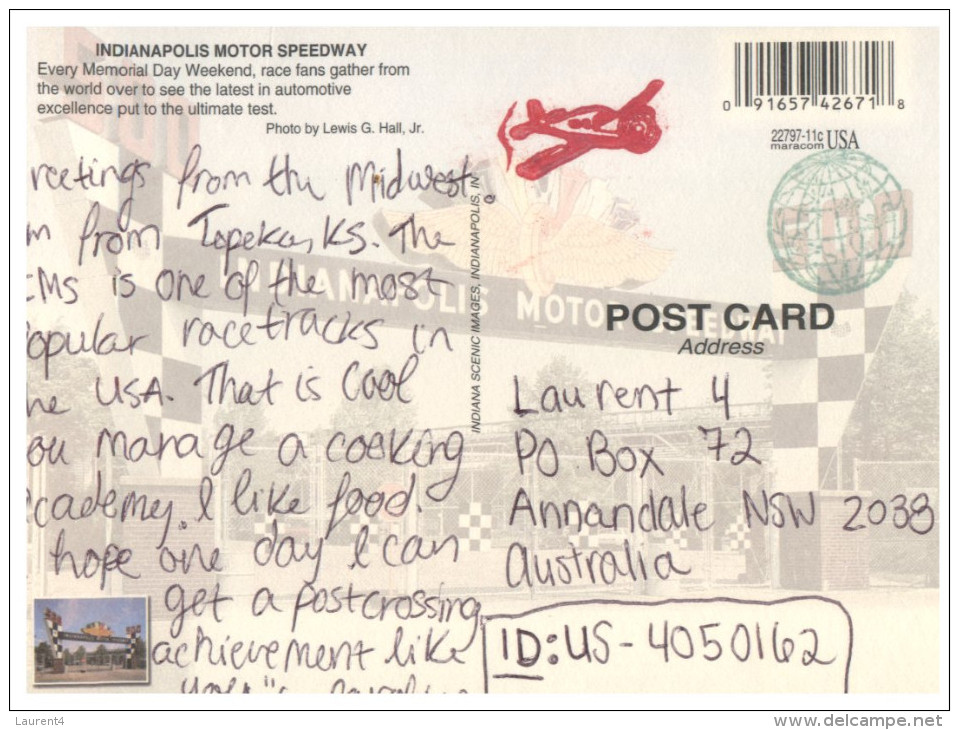 INDIANAPOLIS MOTOR SPEEDWAY
Every Memorial Day Weekend, race fans gather from
the world over to see the latest in automotive
excellence put to the ultimate test.
Photo by Lewis G. Hall, Jr.
reetings from the Midwest.
m from Topeka, KS. The
MS is one of the most
opular racetracks in
he USA. That is Cool
ou manage a cooking
cademy. I like food.
hope one day I can
get a postcrossing
achievement like
INDIANA SCENIC IMAGES, INDIANAPOLIS, IN
0 91657 42671 8
22797-11c USA
maracom
INDIANAPOLIS MOTOR SPEEDWAY
POST CARD
Address
Laurent 4
PO Box 72
Annandale NSW 2038
Australia
ID: US-4050162
Laurent4
www.delcampe.net